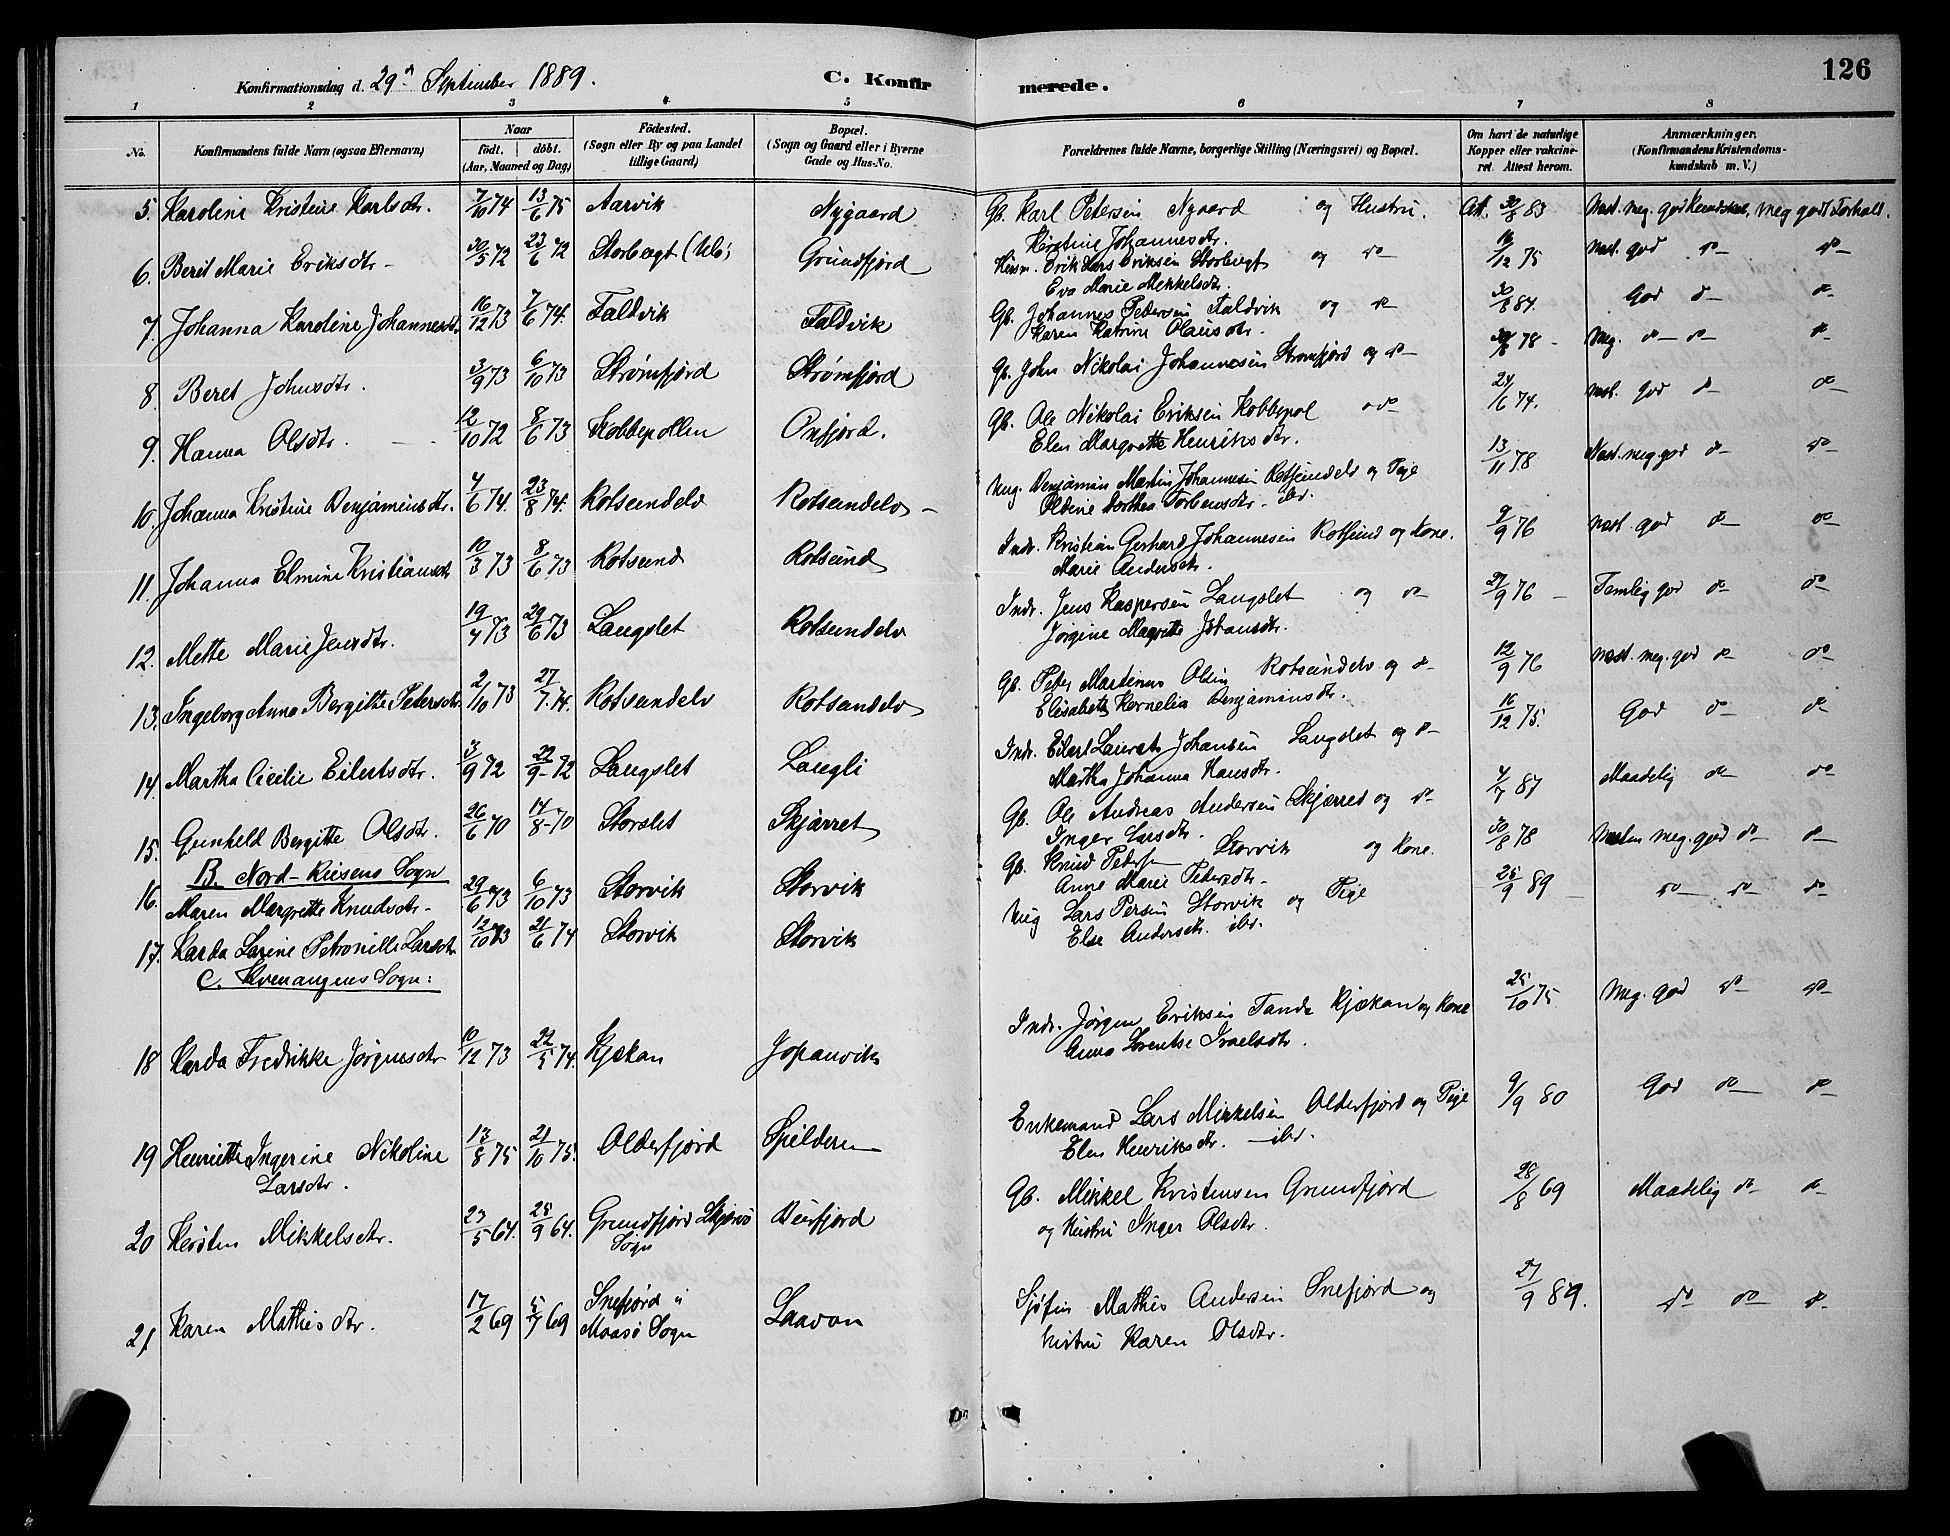 126
Konfirmationsdag d. 29de September 1889. C. Konfirmerede.
1 2 3 4 5 6 7 8
No. Konfirmandens fulde Navn (ogsaa Efternavn) Naar födt. döbt. (Aar, Maaned og Dag) Födested. (Sogn eller By og paa Landet tillige Gaard) Bopæl. (Sogn og Gaard eller i Byerne Gade og Hus-No. Forældrenes fulde Navne, borgerlige Stilling (Næringsvei) og Bopæl. Om havt de naturlige Kopper eller vakcineret. Attest herom. Anmærkninger. (Konfirmandens Kristendomskundskab m. V.)
5. Karoline Kristine Karlsdtr. 7/10 74 13/6 75 Aarvik Nygaard Gb. Karl Petersen Nygaard og Hustru. Att. 30/8 83 Næst. meg. god Kundskab, meg godt Forhold.
Kirstine Johannesdtr.
6. Berit Marie Eriksdtr. 30/5 72 23/6 72 Storbugt Grundfjord Husm. Erik Lars Eriksen Storbugt og do 16/12 75 Næst. god do do
Eva Marie Mikkelsdtr.
7. Johanna Karoline Johannesdtr. 16/12 73 7/6 74. Taldvik Taldvik Gb. Johannes Pedersen Taldvik og do 30/8 84. God do do
Karen Katrine Olausdtr.
8. Beret Johnsdtr. 3/9 73 6/10 73 Strømfjord Strømfjord Gb. John Nikolai Johannesen Strømfjord og do 78 Meg. do do do
9. Hanna Olsdtr. 12/10 72 8/6 73 Kobbepollen Oxfjord. Gb. Ole Nikolai Eriksen Kobbepol o do 24/6 74. Næst. god do do
Elen Margrethe Henriksdtr.
10. Johanna Kristine Benjaminsdtr. 4/6 74. 23/8 74. Rotsundelv Rotsundelv Ung. Benjamin Martin Johannesen Rotsundelv og Pige 13/11 78 Næst. meg god do do
Oldine Dorthea Torbensdtr. ibd.
11. Johanna Elmine Kristiansdtr 10/3 73 8/6 73 Rotsund Rotsund Indr. Kristian Gerhard Johannesen Rotsund og Kone. 9/9 76 Næst. god do do
Marie Andersdtr.
12. Mette Marie Jensdtr. 19/4 73 29/6 73 Langslet Rotsundelv Indr. Jens Kaspersen Langslet og do 27/9 76 Temlig god do do
Jørgine Magrethe Johansdtr.
13. Ingeborg Anna Bergitte Petersdtr. 2/10 73 27/7 74. Rotsundelv Rotsundelv Gb. Peter Martinus Olsen Rotsundelv og do 12/9 76 Næst. meg. god do do
Elisabeth Kornelia Benjaminsdtr.
14. Martha Cicilie Eilertsdtr. 3/9 72 22/9 72 Langslet Langli Indr. Eilert Laurats Johansen Langslet og do 16/12 75. God do do
Martha Johanna Hansdtr.
15. Gunhild Bergitte Olsdtr. 26/6 70 14/8 70 Storslet Skjærret Gb. Ole Andreas Andersen Skjærred og do 4/7 87 Maadelig do do
Inger Larsdtr.
B. Nord-Reisens Sogn
16. Maren Margrette Knudsdtr. 29/6 73 6/10 73 Storvik Storvik Gb. Knud Peders. Storvik og Kone. 30/8 78 Næsten meg. god do do
Anne Marie Petersdtr.
17. Karda Larine Petronille Larsdtr. 12/10 73 21/6 74 Storvik Storvik Ung Lars Persen Storvik og Pige 25/9 89 do do do
Else Andersdtr. ibd.
C. Kvenangens Sogn:
18 Karda Fredrikke Jørgensdtr 10/12 73 22/5 74. Kjækan Jopanvik Indr. Jørgen Eriksen Tanda Kjækan og Kone 25/10 75. Meg. god do do
Anna Lorentse Israelsdtr.
19 Henriette Ingerine Nikoline Larsdtr. 13/8 75 21/10 75. Olderfjord Spilderen Enkemand Lars Mikkelsen Olderfjord og Pige 9/9 80 God do do
Elen Henriksdtr. ibd.
20 Kersten Mikkelsdtr. 23/5 64. 28/9 64. Grundfjord Skjervø Sogn Burfjord Gb. Mikkel Kristensen Grundfjord 28/8 69 Maadelig do do
og Hustru Inger Olsdtr.
21. Karen Mathisdtr. 17/2 69 5/7 69 Snefjord i Maasø Sogn Laavan Sjøfin Mathis Andersen Snefjord og 27/9 89. do do do
Hustru Karen Olsdtr.